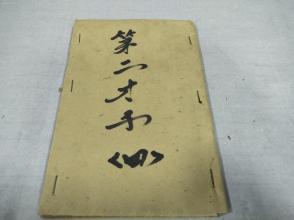 第二才子
<四>